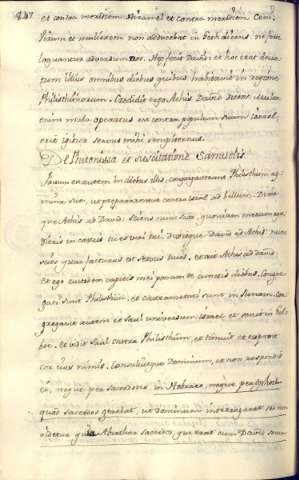 447 et contra meridiem Hiramel et contra meridiem Ceni.
Virum et mulierem non deducebat in Geth dicens, ne forte
loquantur adversum nos. Hoc fecit David: et hoc erat decre-
tum illius omnibus diebus quibus habitavit in regione
Philisthinorum. Credidit ergo Achis David dicens. Multa
enim mala operatus est contra populum suum Israel,
erit igitur servus mihi sempiternus.
De Phitonissa et resuscitatione Samuelis
Factum est autem in diebus illis, congregaverunt Philisthiim ag-
mina sua, ut praepararentur contra Israel ad bellum. Dixit-
que Achis ad David. Sciens nunc scio, quoniam mecum egre-
dieris in castris tu et viri tui. Dixitque David ad Achis nunc
scies quae facturus est servus tuus. et ait Achis ad David.
et ego custodem capitis mei ponam te cunctis diebus. Congre-
gati sunt Philisthiim, et castrametati sunt in Sunam. Con-
gregavit autem et Saul universum Israel et venit in Gelbo-
he. et vidit Saul castra Philisthiim, et timuit et expavit
cor eius nimis. Consuluitque Dominum, et non respondit
ei, neque per sacerdotes, in Hebraeo, neque per ephod
quod sacerdos gerebat, ut dominum interrogaret
Abiathar sacerdos, qui erat cum David